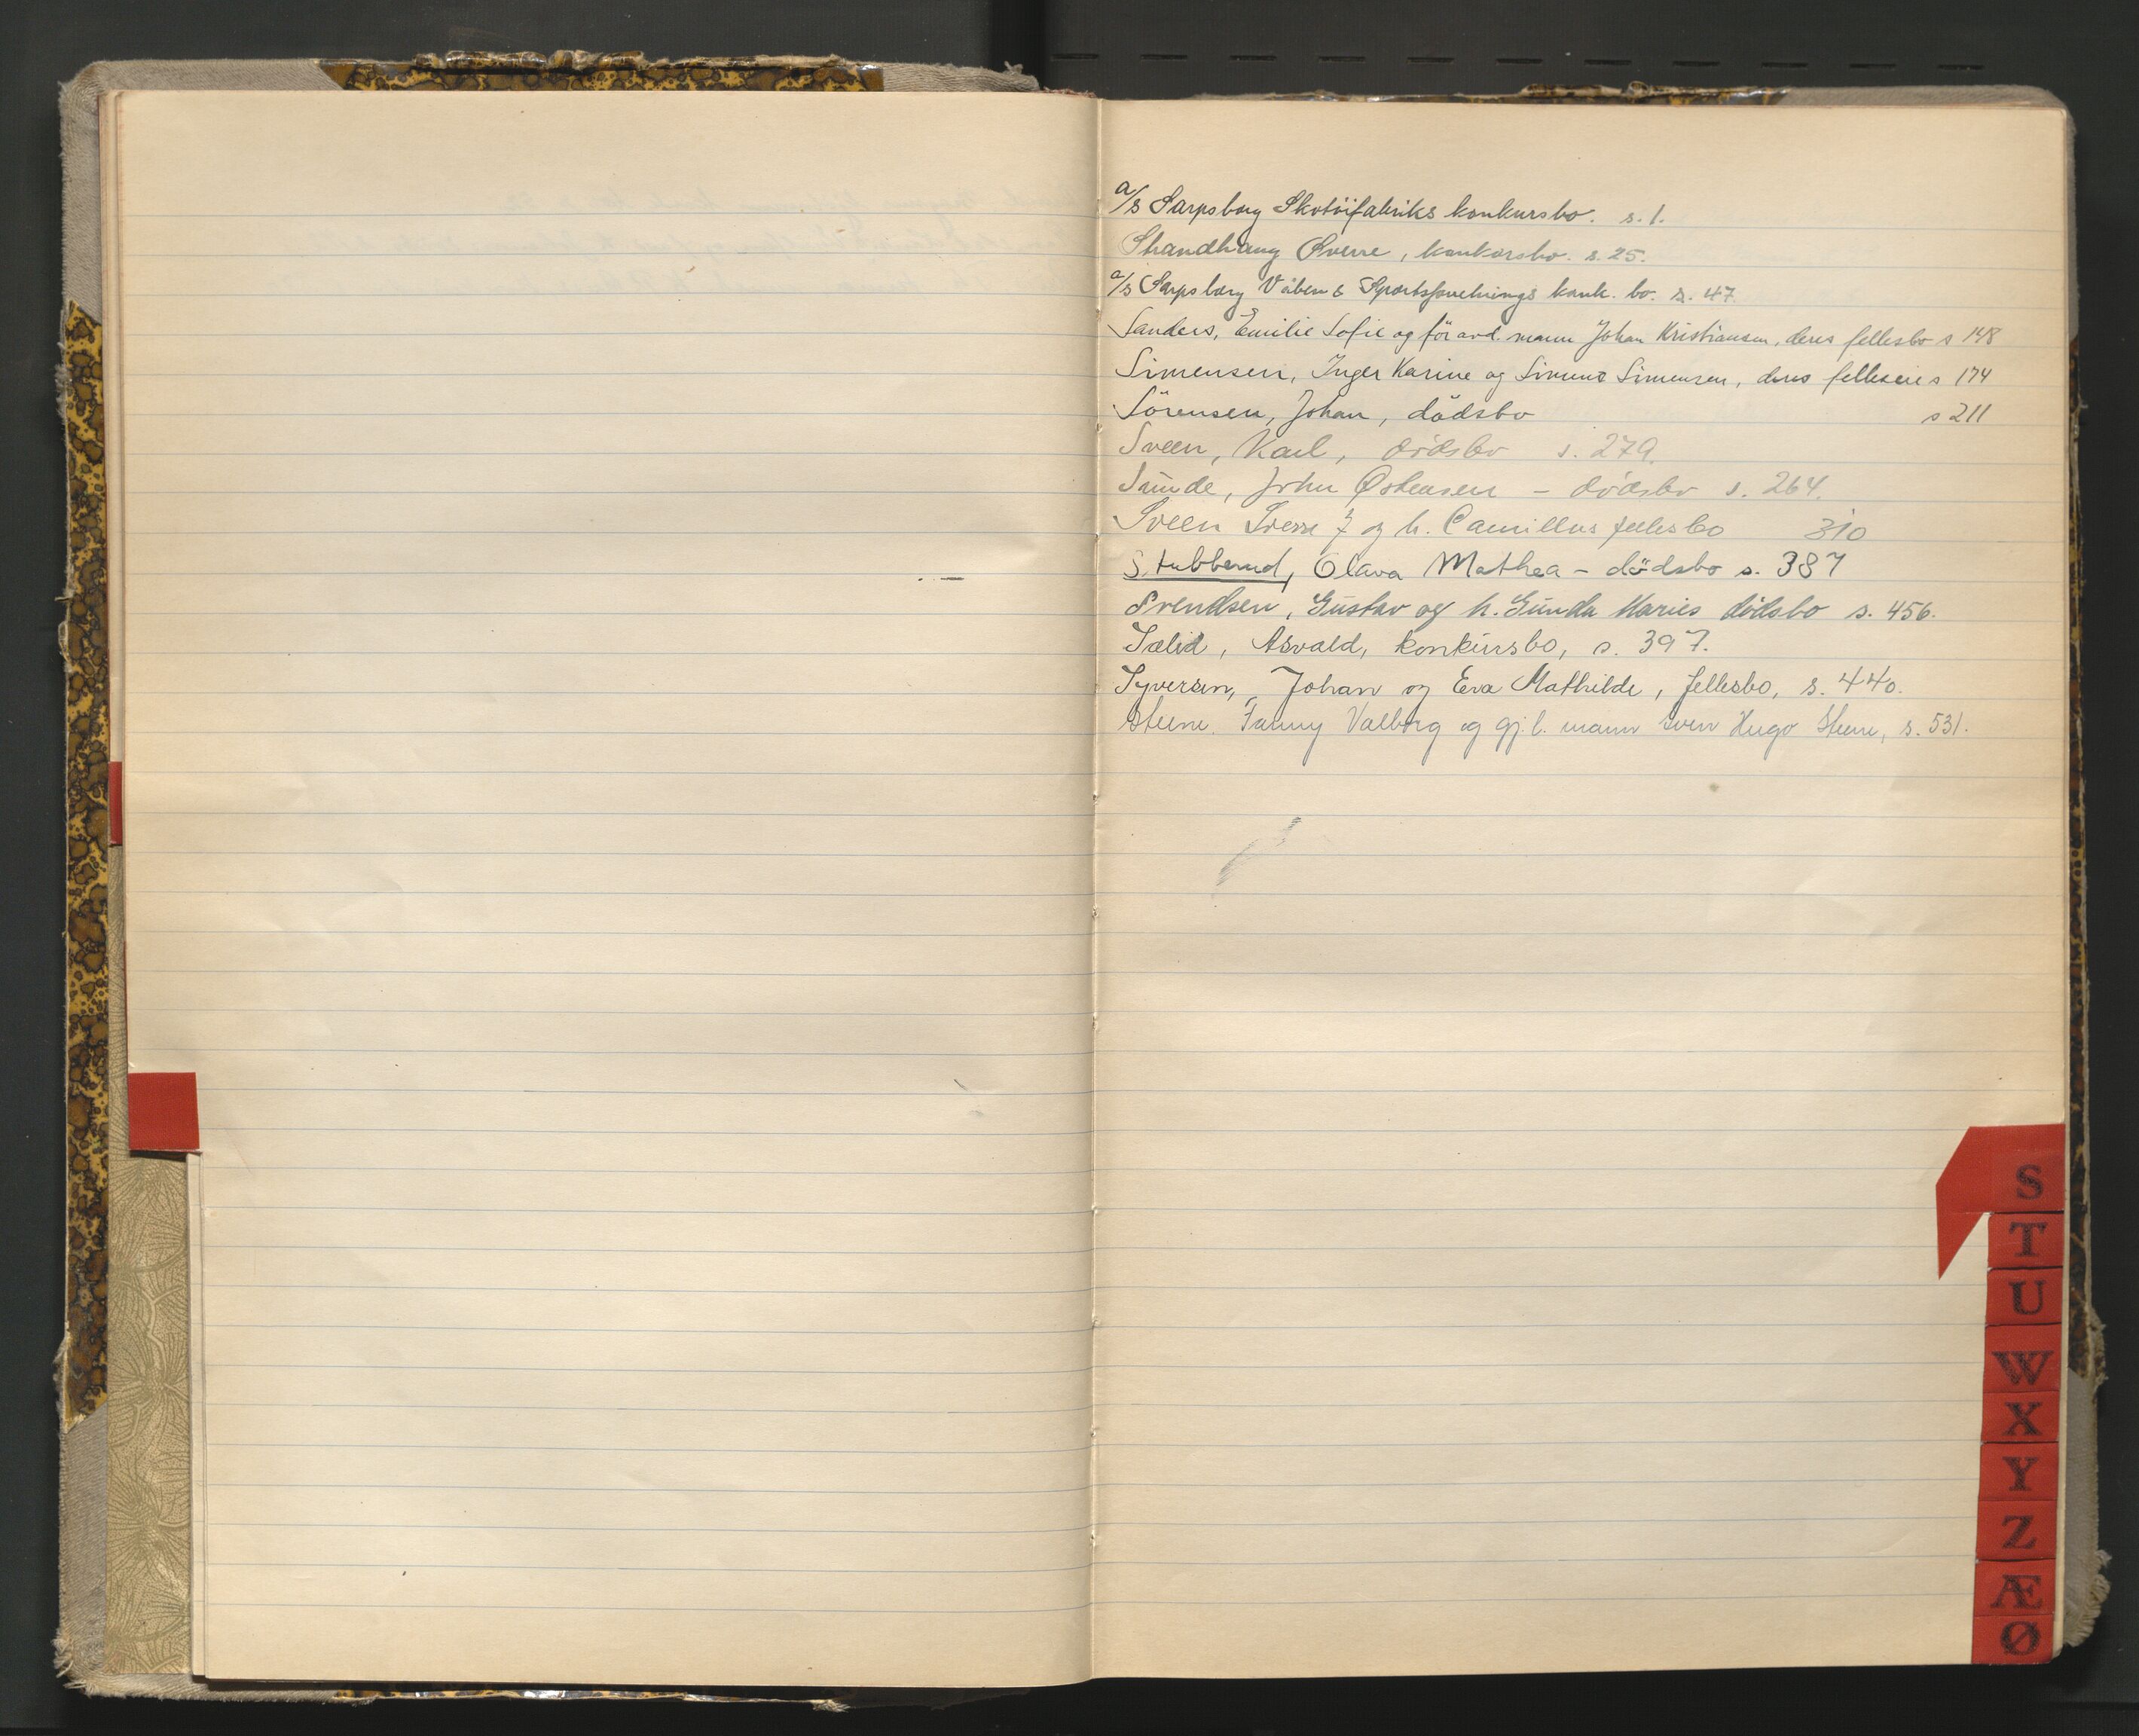 a/s Sarpsborg Skotöifabriks konkursbo. s. 1.
Strandhaug Sverre, konkursbo. s. 25.
a/s Sarpsborg Våben & Sportsforretnings konk. bo. s. 47.
Sanders, Emilie Sofie og för avd. mann Johan Kristiansen, deres fellesbo s 148
Simensen, Inger Karine og Simens Simensen, deres felleseie s 174
Sörensen, Johan, dödsbo s 211
Sveen, Karl, dödsbo s. 279.
Sunde, John Østensen - dödsbo s. 264.
Sveen Sverre J og h. Camillus fellesbo 310
Stubberud, Olava Mathea - dödsbo s. 387
Svendsen, Gustav og h. Gunda Maries dödsbo s. 456.
Sælid, Asvald, konkursbo, s. 397.
Syversen, Johan og Eva Mathilde, fellesbo, s. 440.
Steene, Fanny Valborg og gj.l. mann Sven Hugo Steene, s. 531.
S
T
U
W
X
Y
Z
Æ
Ø